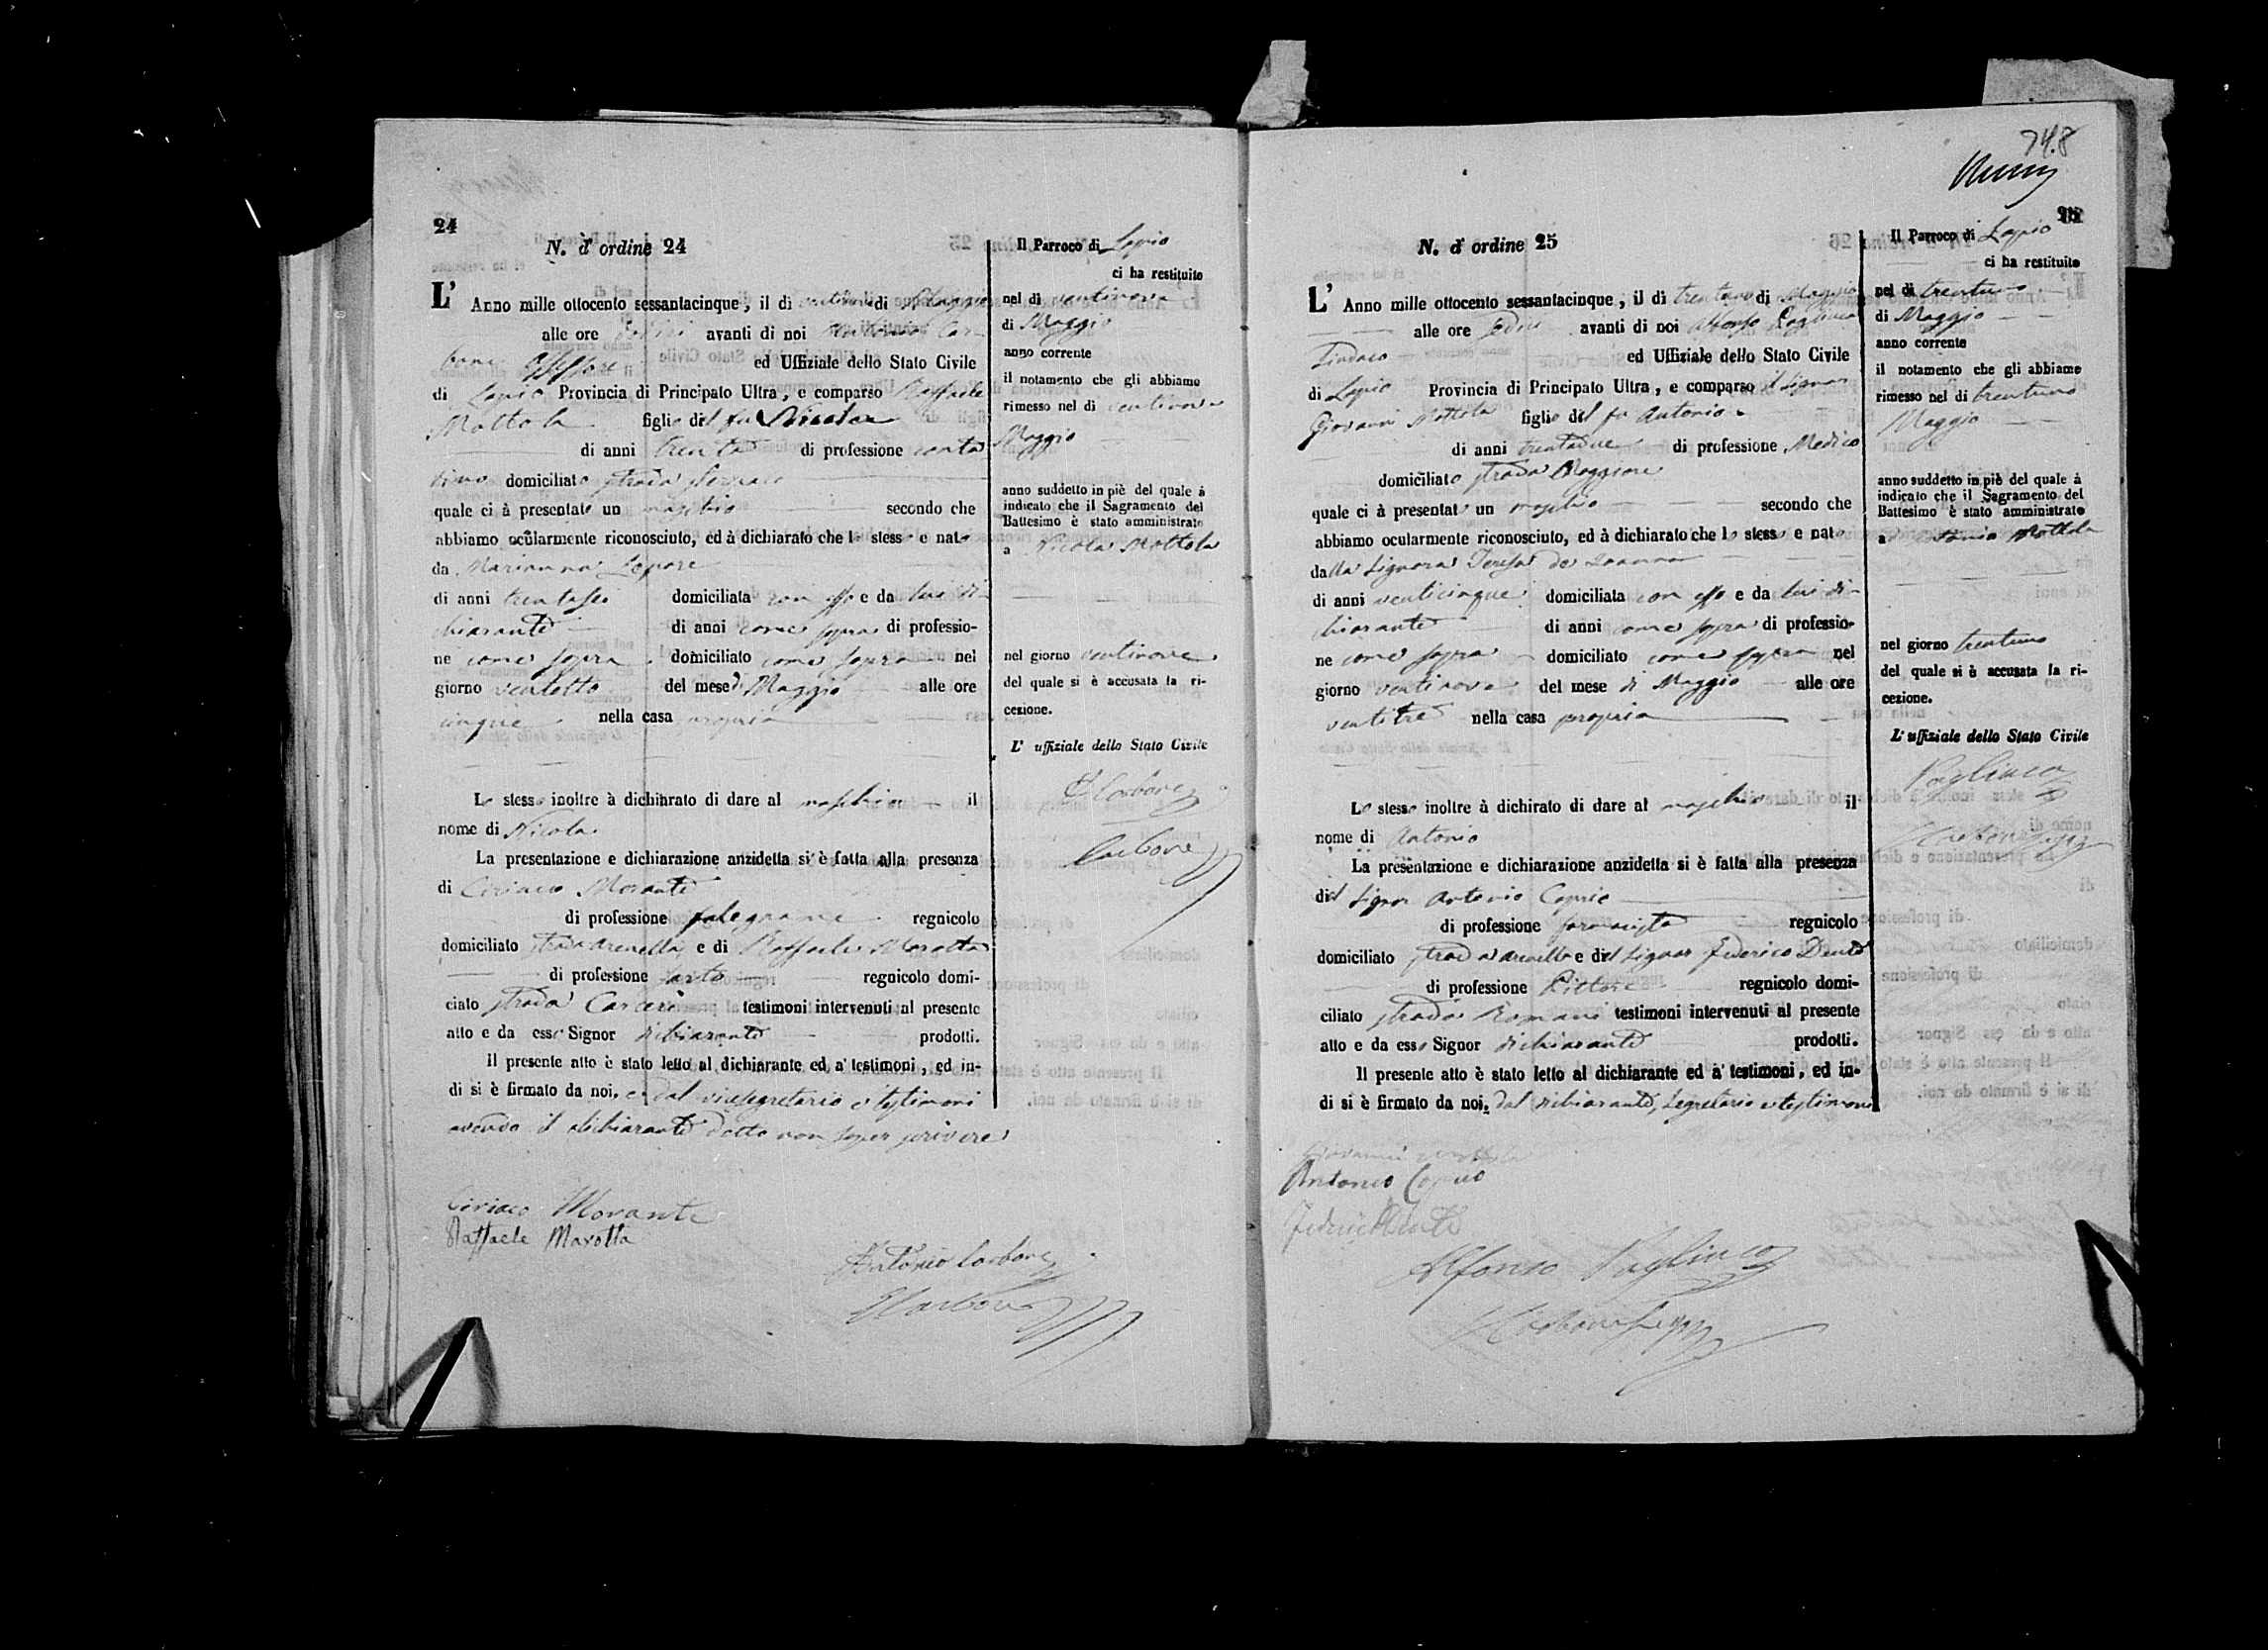 24
N. d' ordine 24
L' Anno mille ottocento sessantacinque, il di di Maggio
alle ore avanti di noi Antonio Car-
bone Assessore ed Uffiziale dello Stato Civile
di Lapio Provincia di Principato Ultra, e comparso Raffaele
Mottola figlio del fu Nicola
di anni trenta di professione conta
dino domiciliato strada
quale ci à presentato un maschio secondo che
abbiamo ocularmente riconosciuto, ed à dichiarato che lo stesso e nato
da Marianna Lepore
di anni trentasei domiciliata con esso e da lui di-
chiarante di anni come sopra di professio-
ne come sopra domiciliato come sopra nel
giorno ventotto del mese di Maggio alle ore
cinque nella casa propria
Lo stesso inoltre à dichiarato di dare al maschio il
nome di Nicola
La presentazione e dichiarazione anzidetta si è fatta alla presenza
di Ciriaco Morante
di professione falegname regnicolo
domiciliato strada Arenella e di Raffaele Marotta
di professione sarto regnicolo domi-
ciato strada Carceri testimoni intervenuti al presente
atto e da esso Signor dichiarante prodotti.
Il presente atto è stato letto al dichiarante ed a' testimoni, ed in-
di si è firmato da noi, e dal vicesegretario e testimoni
avendo il dichiarante detto non saper scrivere
Ciriaco Morante
Raffaele Marotta
Antonio Carbone
Carbone
Il Parroco di Lapio
ci ha restituito
nel di ventinove
di Maggio
anno corrente
il notamento che gli abbiamo
rimesso nel di ventinove
Maggio
anno suddetto in piè del quale à
indicato che il Sagramento del
Battesimo è stato amministrato
a Nicola Mottola
nel giorno ventinove
del quale si è accusata la ri-
cezione.
L' uffiziale dello Stato Civile
Carbone
Carbone
748
25
N. d' ordine 25
L' Anno mille ottocento sessantacinque, il di trentuno di Maggio
alle ore sedici avanti di noi Alfonso Pagliuca
Sindaco ed Uffiziale dello Stato Civile
di Lapio Provincia di Principato Ultra, e comparso il Signor
Giovanni Mottola figlio del fu Antonio
di anni trentadue di professione Medico
domiciliato strada Maggiore
quale ci à presentato un maschio secondo che
abbiamo ocularmente riconosciuto, ed à dichiarato che lo stesso e nato
dalla Signora Teresa de Joanna
di anni venticinque domiciliata con esso e da lui di-
chiarante di anni come sopra di professio-
ne come sopra domiciliato come sopra nel
giorno ventinove del mese di Maggio alle ore
ventitre nella casa propria
Lo stesso inoltre à dichirato di dare al maschio il
nome di Antonio
La presentazione e dichiarazione anzidetta si è fatta alla presenza
del Signor Antonio Caprio
di professione farmacista regnicolo
domiciliato strada Arenella e del Signor Federico Dente
di professione Pittore regnicolo domi-
ciliato strada Romano testimoni intervenuti al presente
atto e da esso Signor dichiarante prodotti.
Il presente atto è stato letto al dichiarante ed a' testimoni, ed in-
di si è firmato da noi, dal dichiarante, Segretario e testimoni
Giovanni Mottola
Antonio Caprio
Federico Dente
Alfonso Pagliuca
Carbone Segr
Il Parroco di Lapio
ci ha restituito
nel di trentuno
di Maggio
anno corrente
il notamento che gli abbiamo
rimesso nel di trentuno
Maggio
anno suddetto in piè del quale à
indicato che il Sagramento del
Battesimo è stato amministrato
a Antonio Mottola
nel giorno trentuno
del quale si è accusata la ri-
cezione.
L' uffiziale dello Stato Civile
Pagliuca
Carbone Segr